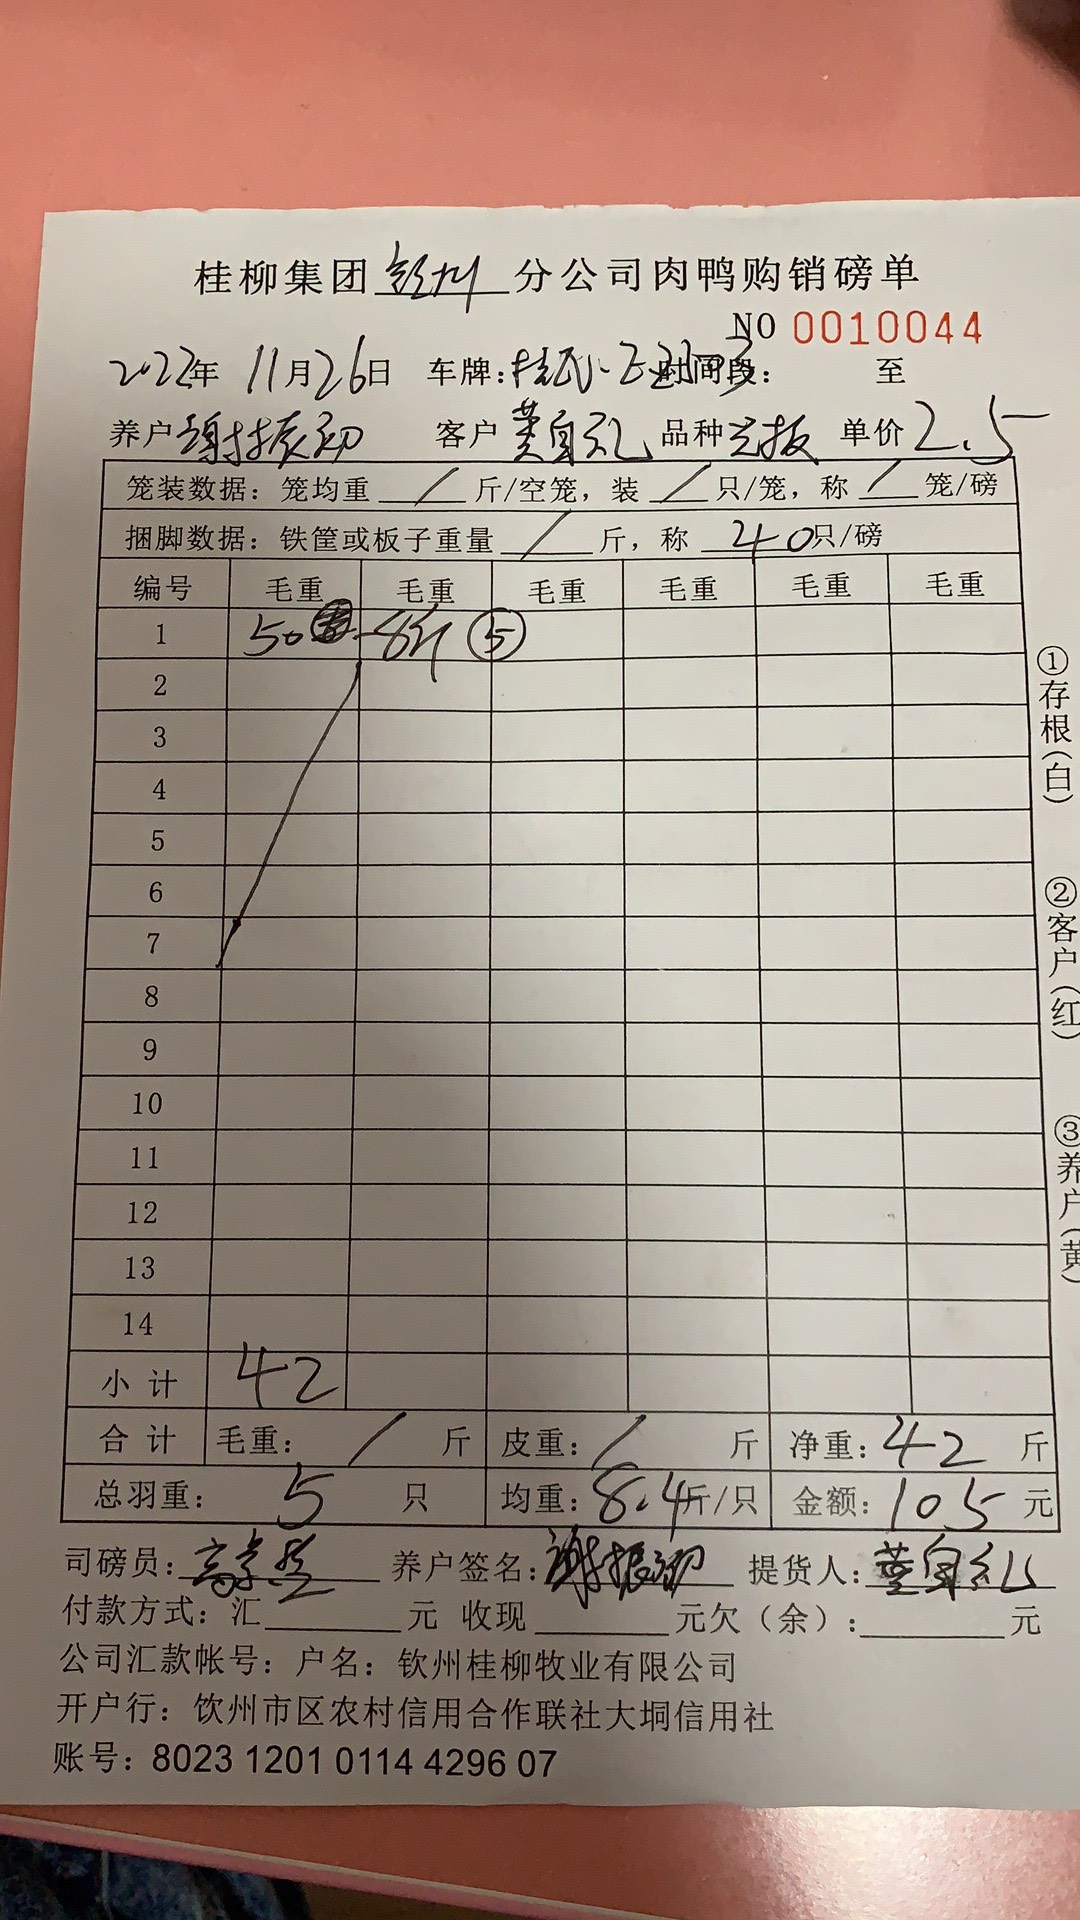 桂柳集团钦州分公司肉鸭购销磅单
NO 0010044
2022年 11月26日 车牌: 时间段: 至
养户谢振初 客户 黄自礼 品种 单价2.5
笼装数据: 笼均重 / 斤/空笼, 装 / 只/笼, 称 / 笼/磅
捆脚数据: 铁筐或板子重量 / 斤, 称 40只/磅
编号 毛重 毛重 毛重 毛重 毛重 毛重
1 50 -8斤 ⑤
2
3
4
5
6
7
8
9
10
11
12
13
14
小计 42
合计 毛重: / 斤 皮重: / 斤 净重: 42 斤
总羽重: 5 只 均重: 8.4斤/只 金额: 105 元
司磅员: 养户签名: 谢振初 提货人: 黄自礼
付款方式: 汇 元 收现 元欠(余): 元
公司汇款帐号: 户名: 钦州桂柳牧业有限公司
开户行: 饮州市区农村信用合作联社大垌信用社
账号: 8023 1201 0114 4296 07
①存根(白)
②客户(红)
③养户(黄)